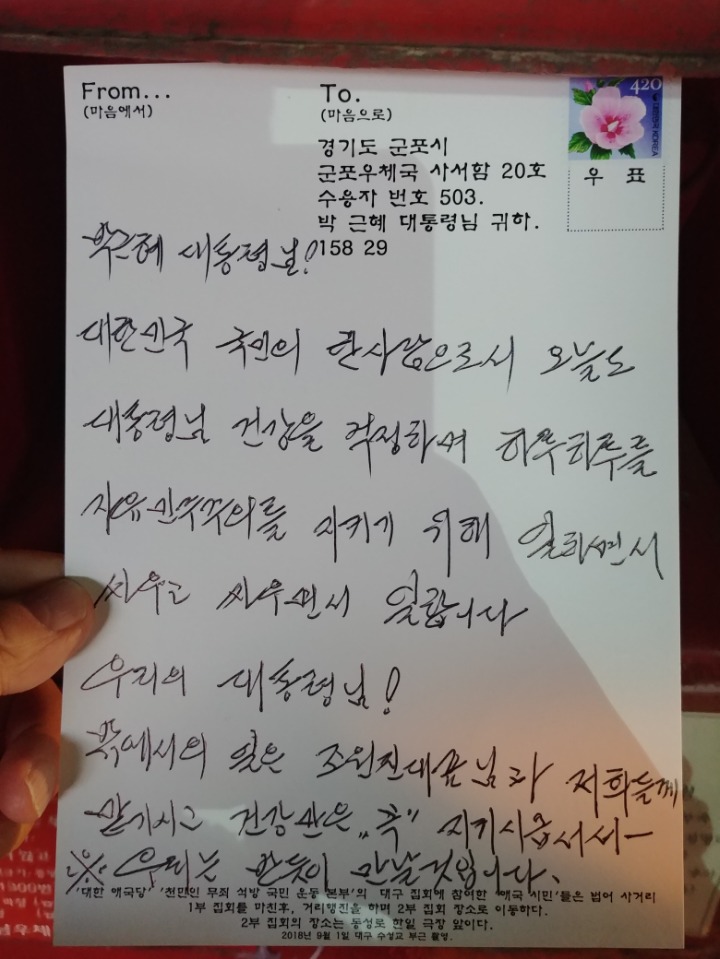 From...
(마음에서)
To.
(마음으로)
경기도 군포시
군포우체국 사서함 20호
수용자 번호 503.
박 근혜 대통령님 귀하.
158 29
420
대한민국 KOREA
우 표
박근혜 대통령님!
대한민국 국민의 한사람으로서 오늘도
대통령님 건강을 걱정하며 하루하루를
자유민주주의를 지키기 위해 일하면서
싸우고 싸우면서 일합니다
우리의 대통령님!
밖에서의 일은 조원진대표님과 저희들께
맡기시고 건강만은 "꼭" 지키시옵서서ㅡ
※ 우리는 반듯이 만날것입니다.
'대한 애국당' '천만인 무죄 석방 국민 운동 본부'의 대구 집회에 참여한 '애국 시민'들은 범어 사거리
1부 집회를 마친후, 거리행진을 하며 2부 집회 장소로 이동하다.
2부 집회의 장소는 동성로 한일 극장 앞이다.
2018년 9월 1일 대구 수성교 부근 촬영.